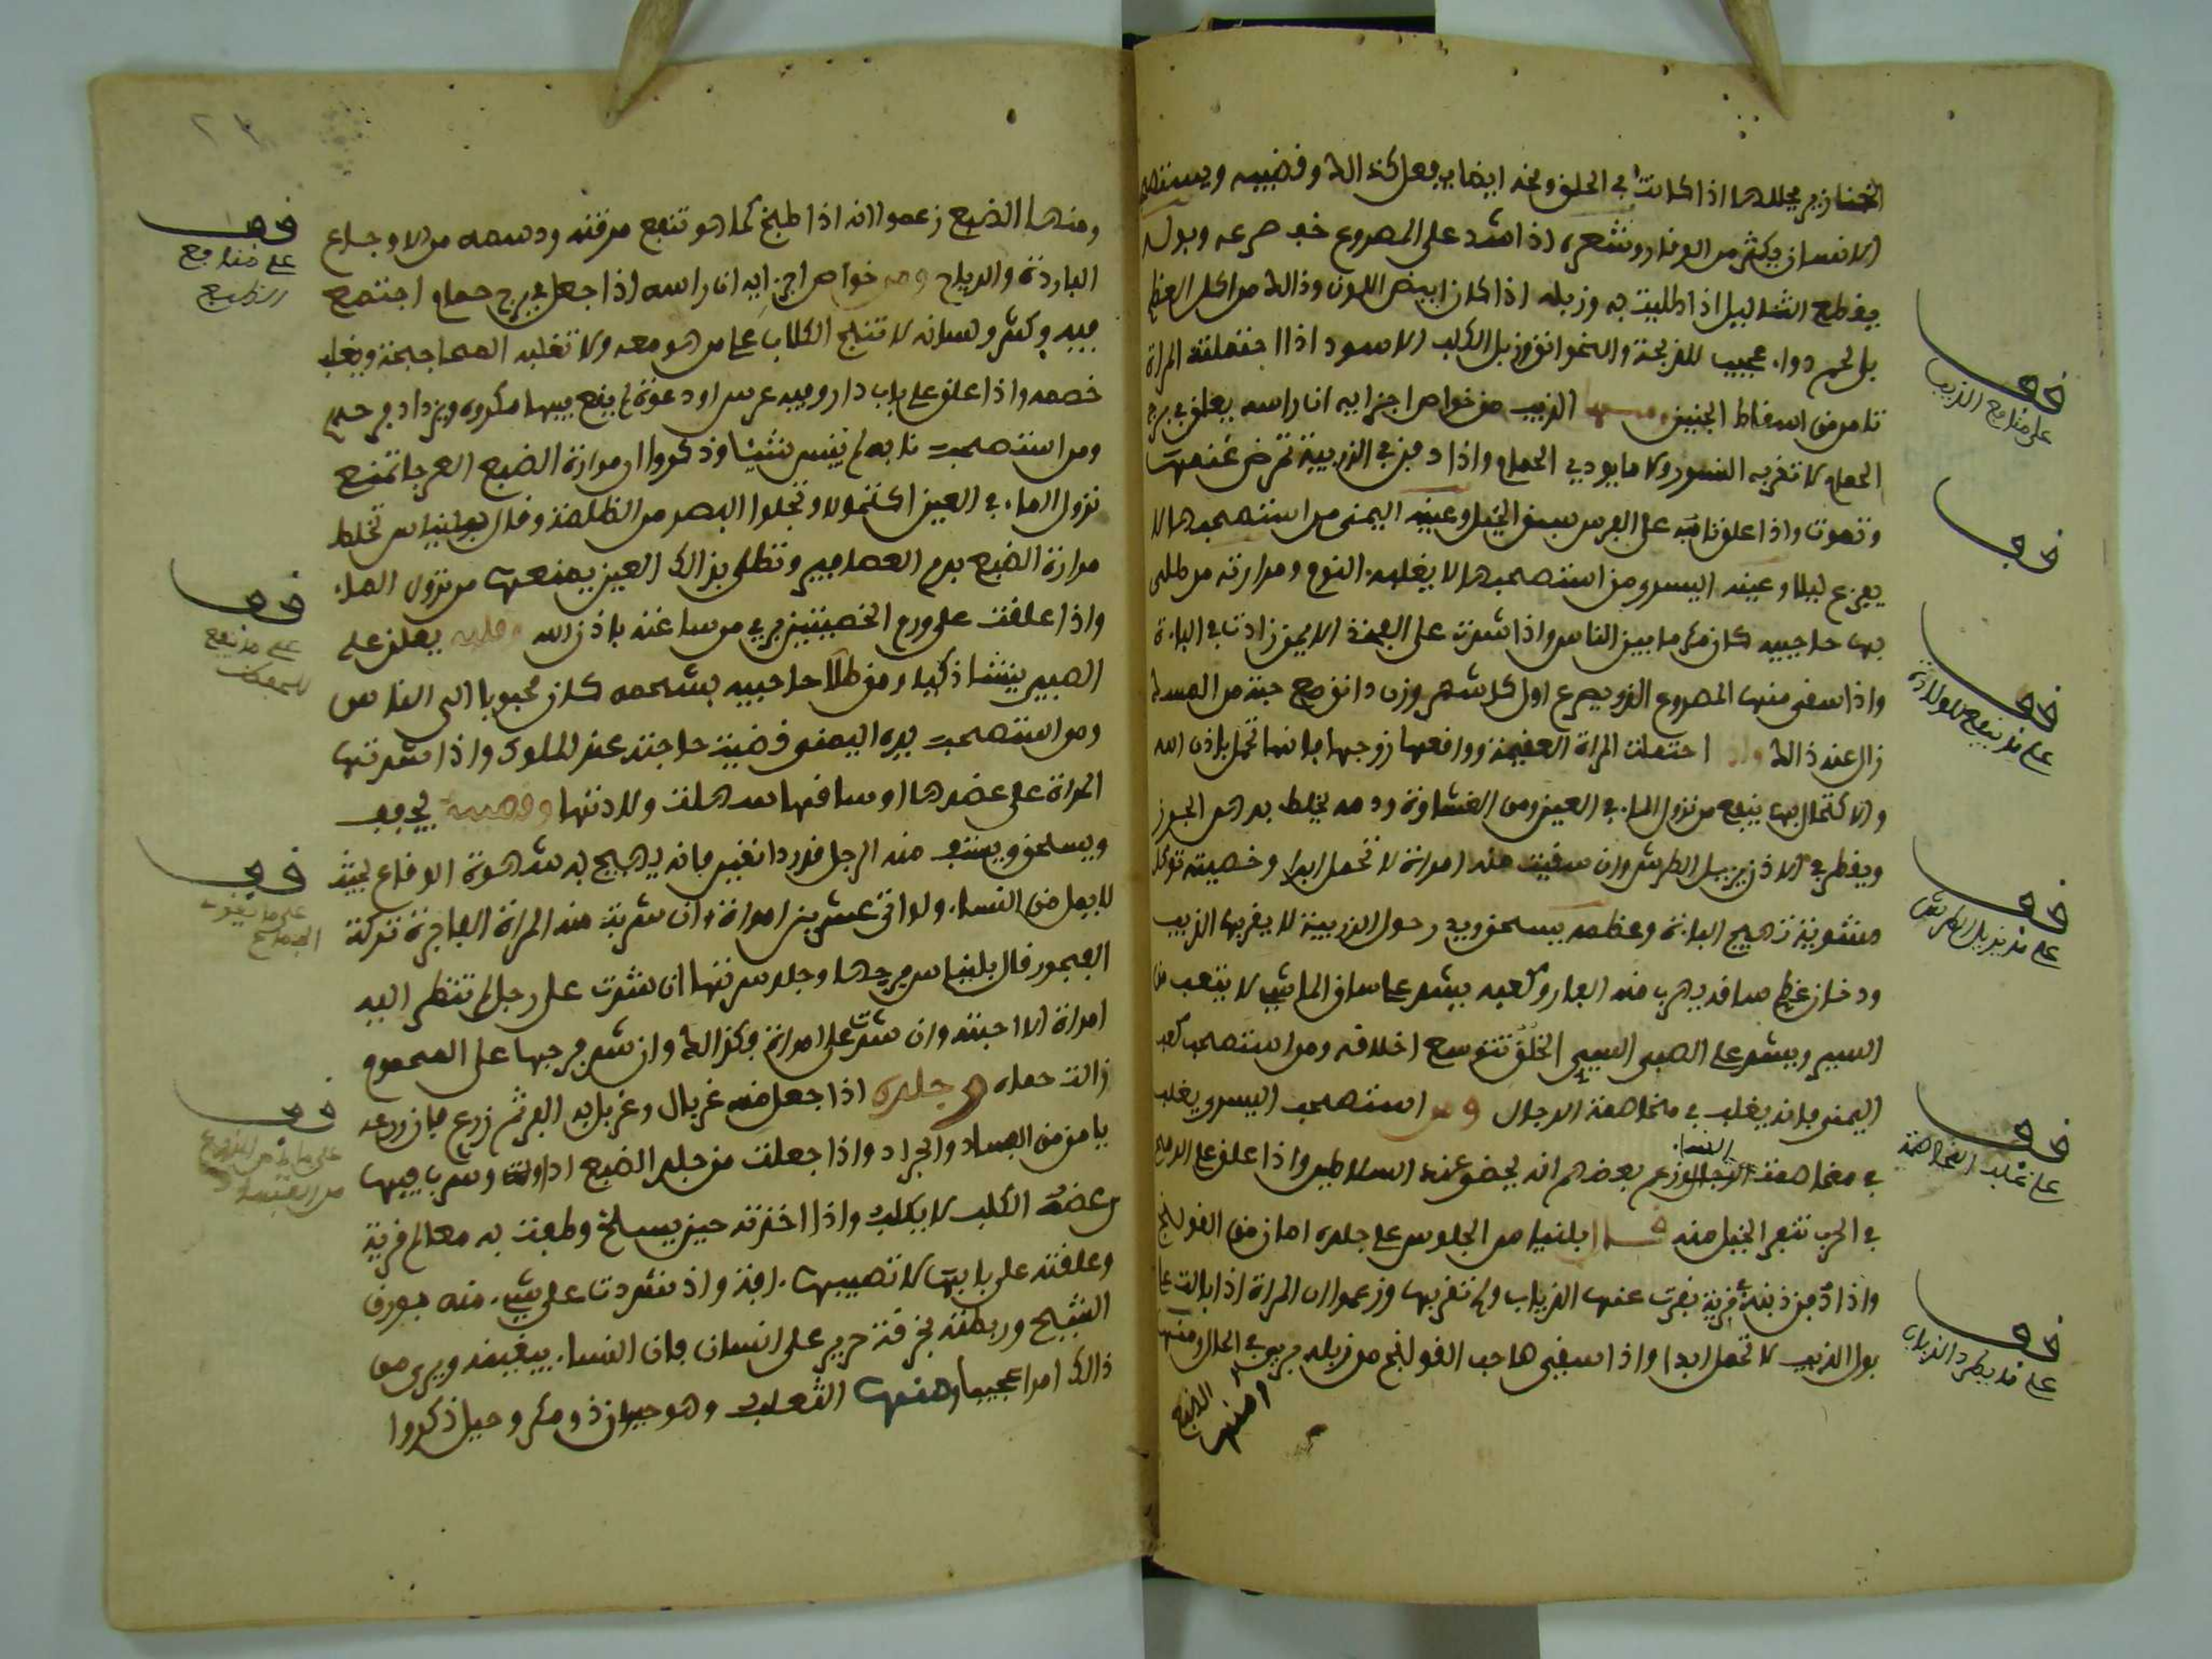 الخنازير يحللها اذا كانت في الحلق ومخه ايضا يفعل كذالك وقضيبه ويستعمل
الانسان يكثر من الوقاد وشعره اذا شد على المصروع خف صرعه وبوله
يقطع الثئاليل اذا طليت به وزبله اذا كان ابيض اللون وذالك من اكل العظم
بل لحم دواء عجيب للذبحة والخوانق وزبل الكلب الاسود اذا احتملته المراة
تامن من اسقاط الجنين ومنها الذيب من خواص اجزايه ان راسه يعلق في برج
الحمام لا تقربه السنور ولا ما يودي الحمام واذا دفن في الزريبة تمرض غنمها
وتموت واذا علق نابه على الفرس سبق الخيل وعينه اليمنى من استصحبها لا
يفزع ليلا وعينه اليسرى من استصحبها لا يغلبه النوم ومرارته من طلى
بها حاجبيه كان مكرما بين الناس واذا شدت على الفخذ الايمن زادت في الباءة
واذا سقي منها المصروع الذي يصرع اول كل شهر وزن دانق مع حبة من المسك
زال عنه ذالك واذا احتملت المراة العقيمة وواقعها زوجها فانها تحمل باذن الله
والاكتحال بها ينفع من نزول الماء في العين ومن الغشاوة ودمه يخلط بدهن الجوز
ويقطر في الاذن يزيل الطرش وان سقيت منه امراة لا تحمل ابدا وخصيته توكل
مشوية تهيج الباءة وعظمه يسحق ويدر حول الزريبة لا يقربها الذيب
ودخان عظم ساقه يهرب منه الفار وكعبه يشد على ساق الماشي لا يتعب من
السير ويشد على الصبي السيئ الخلق تتوسع اخلاقه ومن استصحب كعبه
اليمنى فانه يغلب في مخاصمة الرجال ومن استصحب اليسرى يغلب
في مخاصمة النساء وزعم بعضهم انه يحضر عند السلاطين واذا علق على الرمح
في الحرب تنفر الخيل منه قال بلنياس الجلوس على جلده امان من القولنج
واذا دفن ذنبه في قرية نفرت عنها الذياب ولم تقربها وزعموا ان المراة اذا بالت على
بول الذيب لا تحمل ابدا واذا سقي صاحب القولنج من زبله يبرى في الحال ومنها
الضبع
قف
على منافع الذيب
قف
قف
على ما ينفع للولادة
قف
على ما يزيل الطرش
قف
على غلب المخاصمة
قف
على ما يطرد الذياب
ومنها الضبع زعموا انه اذا طبخ كما هو تنفع مرقته ودسمه من الاوجاع
الباردة والرياح ومن خواص اجزايه ان راسه اذا جعل في برج حمام اجتمع
فيه وكثر ولسانه لا تنبح الكلاب على من هو معه ولا تغلبه المحاججة ويغلب
خصمه واذا علق على باب دار وفيه عرس او دعوة لم يقع فيها مكروه ويزداد فرحهم
ومن استصحب نابه لم ينس شيئا وذكروا ان مرارة الضبع العرجا تمنع
نزول الماء في العين اكتحالا وتجلوا البصر من الظلمة وقال بلنياس تخلط
مرارة الضبع بدم العصافير وتطلى بذالك العين يمنعها من نزول الماء
واذا علقت على ورم الخصيتين برى من ساعته باذن الله وقلبه يعلق على
الصبي ينشا ذكيا ومن طلا حاجبيه بشحمه كان محبوبا الى الناس
ومن استصحب يده اليمنى قضيت حاجته عند الملوك واذا شدتها
المراة على عضدها او ساقها سهلت ولادتها وقضيبه يجفف
ويسحق ويستف منه الرجل قدر دانقين فانه يهيج به شهوة الوقاع بحيث
لا يمل من النساء ولو اتى عشرين امراة وان شربت منه المراة الفاجرة تركت
الفجور قال بلنياس فرجها وجلد سرتها ان شدت على رجل لم تنظر اليه
امراة الا احبته وان شدت على امراة فكذالك وان شد فرجها على المحموم
زالت حماه وجلده اذا جعل منه غربال وغربل به البر ثم زرع فان زرعه
يامن من الفساد والجراد واذا جعلت من جلد الضبع اداوة وشرب فيها
من عضه الكلب لا يكلب واذا اخذته حين يسلخ وطفت به معالم قرية
وعلقته على بابها لا تصيبها افة واذا شددت على شيء منه بورق
الشيح وربطته بخرقة حرير على انسان فان النساء يبغضنه ويرى من
ذالك امرا عجيبا ومنها الثعلب وهو حيوان ذو مكر وحيل ذكروا
قف
على منافع
الضبع
قف
على ما ينفع
قف
على ما يقوي
الجماع
قف